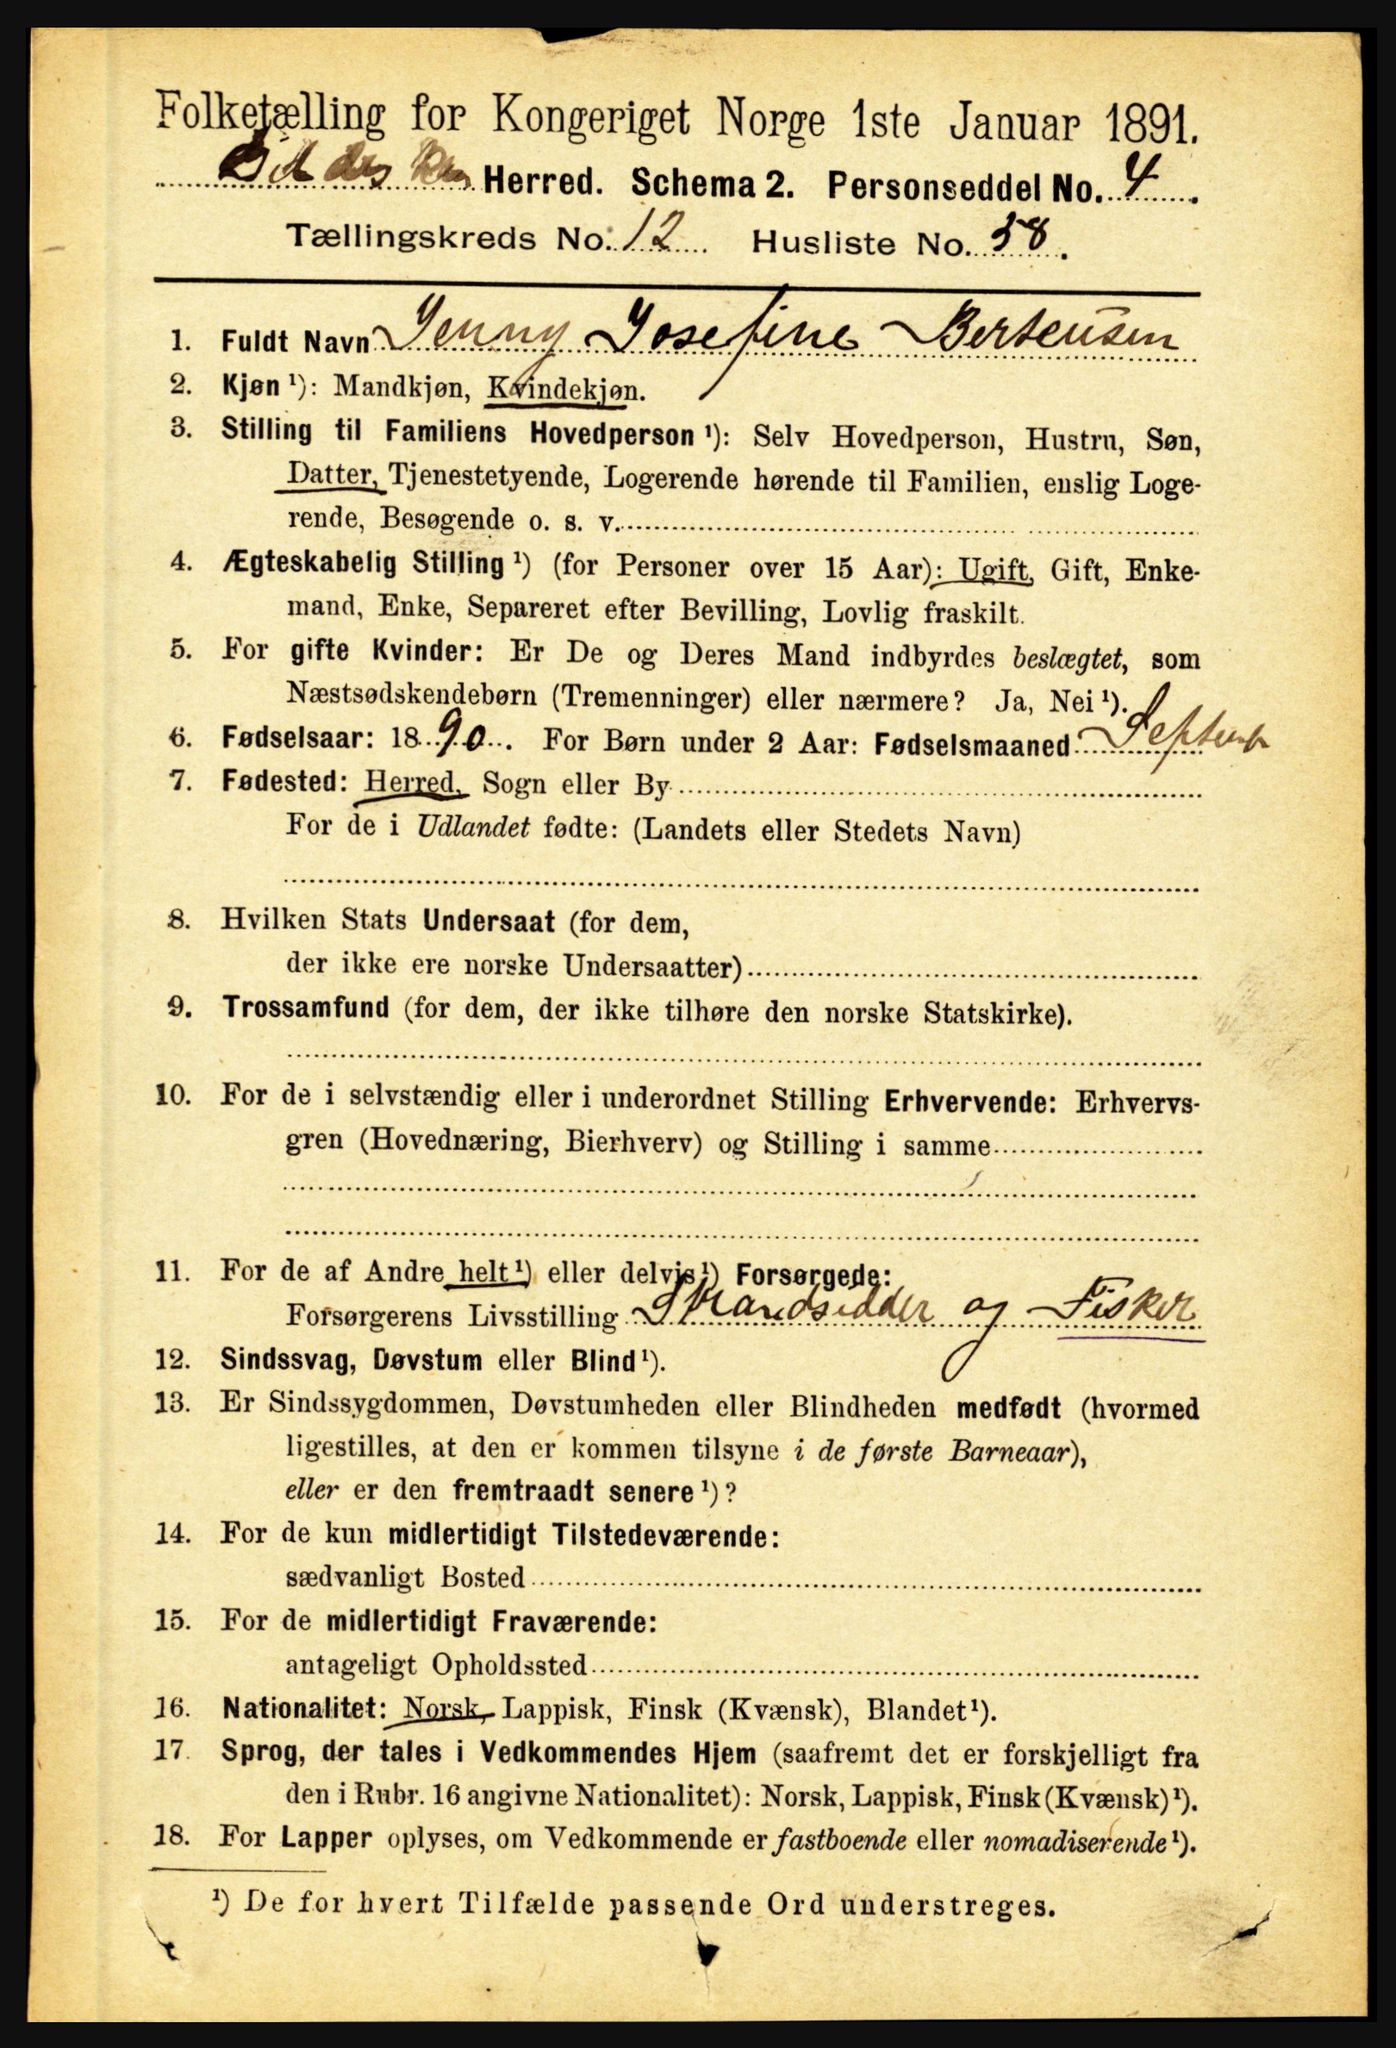 Folketælling for Kongeriget Norge 1ste Januar 1891.
Herred. Schema 2. Personseddel No. 4.
Tællingskreds No. 12 Husliste No. 38.
1. Fuldt Navn Jenny Josefine Berteusen
2. Kjøn ¹): Mandkjøn, Kvindekjøn.
3. Stilling til Familiens Hovedperson ¹): Selv Hovedperson, Hustru, Søn,
Datter, Tjenestetyende, Logerende hørende til Familien, enslig Loge-
rende, Besøgende o. s. v.
4. Ægteskabelig Stilling ¹) (for Personer over 15 Aar): Ugift, Gift, Enke-
mand, Enke, Separeret efter Bevilling, Lovlig fraskilt.
5. For gifte Kvinder: Er De og Deres Mand indbyrdes beslægtet, som
Næstsødskendebørn (Tremenninger) eller nærmere? Ja, Nei ¹).
6. Fødselsaar: 1890. For Børn under 2 Aar: Fødselsmaaned Septembr
7. Fødested: Herred, Sogn eller By
For de i Udlandet fødte: (Landets eller Stedets Navn)
8. Hvilken Stats Undersaat (for dem,
der ikke ere norske Undersaatter)
9. Trossamfund (for dem, der ikke tilhøre den norske Statskirke).
10. For de i selvstændig eller i underordnet Stilling Erhvervende: Erhvervs-
gren (Hovednæring, Bierhverv) og Stilling i samme
11. For de af Andre helt ¹) eller delvis ¹) Forsørgede:
Forsørgerens Livsstilling Strandsidder og Fisker
12. Sindssvag, Døvstum eller Blind ¹).
13. Er Sindssygdommen, Døvstumheden eller Blindheden medfødt (hvormed
ligestilles, at den er kommen tilsyne i de første Barneaar),
eller er den fremtraadt senere ¹)?
14. For de kun midlertidigt Tilstedeværende:
sædvanligt Bosted
15. For de midlertidigt Fraværende:
antageligt Opholdssted
16. Nationalitet: Norsk, Lappisk, Finsk (Kvænsk), Blandet ¹).
17. Sprog, der tales i Vedkommendes Hjem (saafremt det er forskjelligt fra
den i Rubr. 16 angivne Nationalitet): Norsk, Lappisk, Finsk (Kvænsk) ¹).
18. For Lapper oplyses, om Vedkommende er fastboende eller nomadiserende ¹).
¹) De for hvert Tilfælde passende Ord understreges.